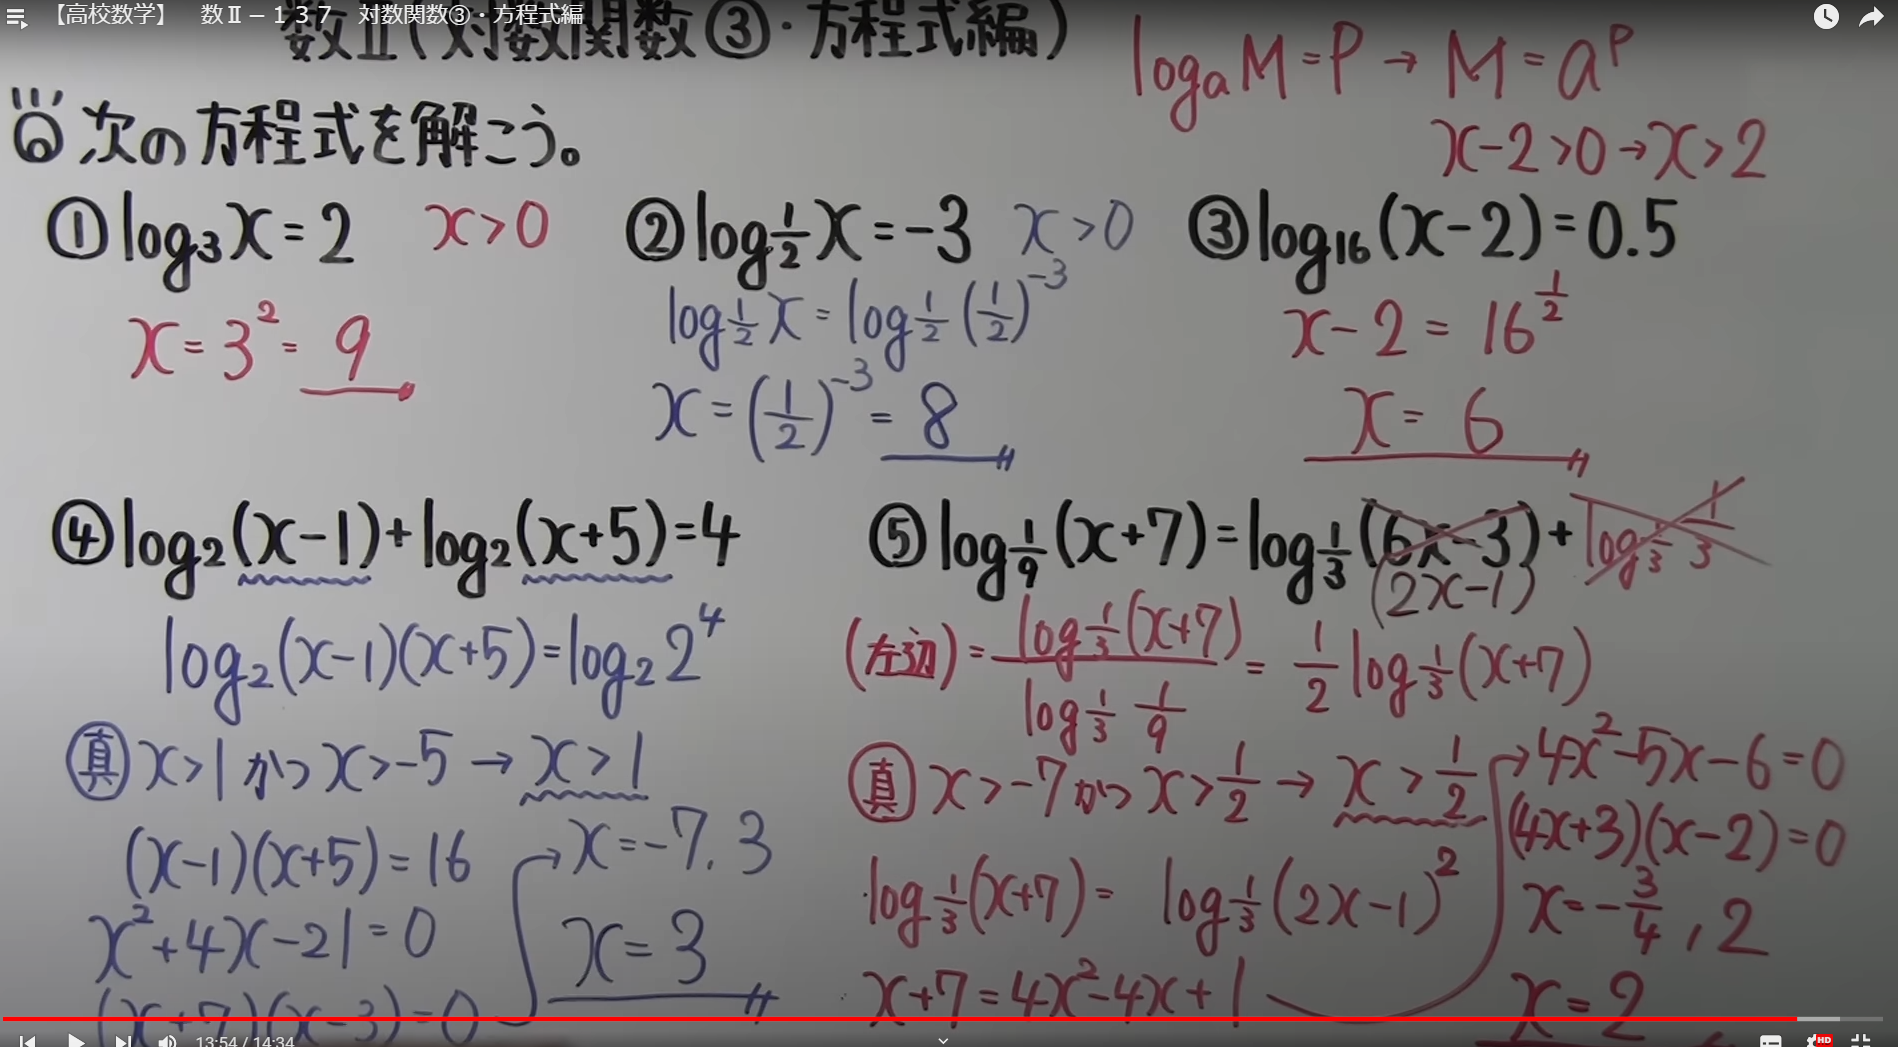 【高校数学】 数Ⅱ－１３７ 対数関数③・方程式編
数Ⅱ(対数関数③・方程式編)
logₐM=P → M=aᴾ
次の方程式を解こう。
x-2>0→x>2
①log₃x=2 x>0
x=3²=9
②log½x=-3 x>0
log½x=log½(1/2)⁻³
x=(1/2)⁻³=8
③log₁₆(x-2)=0.5
x-2=16^½
x=6
④log₂(x-1)+log₂(x+5)=4
log₂(x-1)(x+5)=log₂2⁴
真 x>1かつx>-5→x>1
(x-1)(x+5)=16
x²+4x-21=0
(x+7)(x-3)=0
x=-7.3
x=3
⑤log1/9(x+7)=log1/3(6x-3)+log1/3 1/3
(2x-1)
(左辺)=log1/3(x+7)/log1/3 1/9=1/2 log1/3(x+7)
真 x>-7かつx>1/2→x>1/2
log1/3(x+7)=log1/3(2x-1)²
x+7=4x²-4x+1
4x²-5x-6=0
(4x+3)(x-2)=0
x=-3/4,2
x=2
13:54 / 14:34
HD